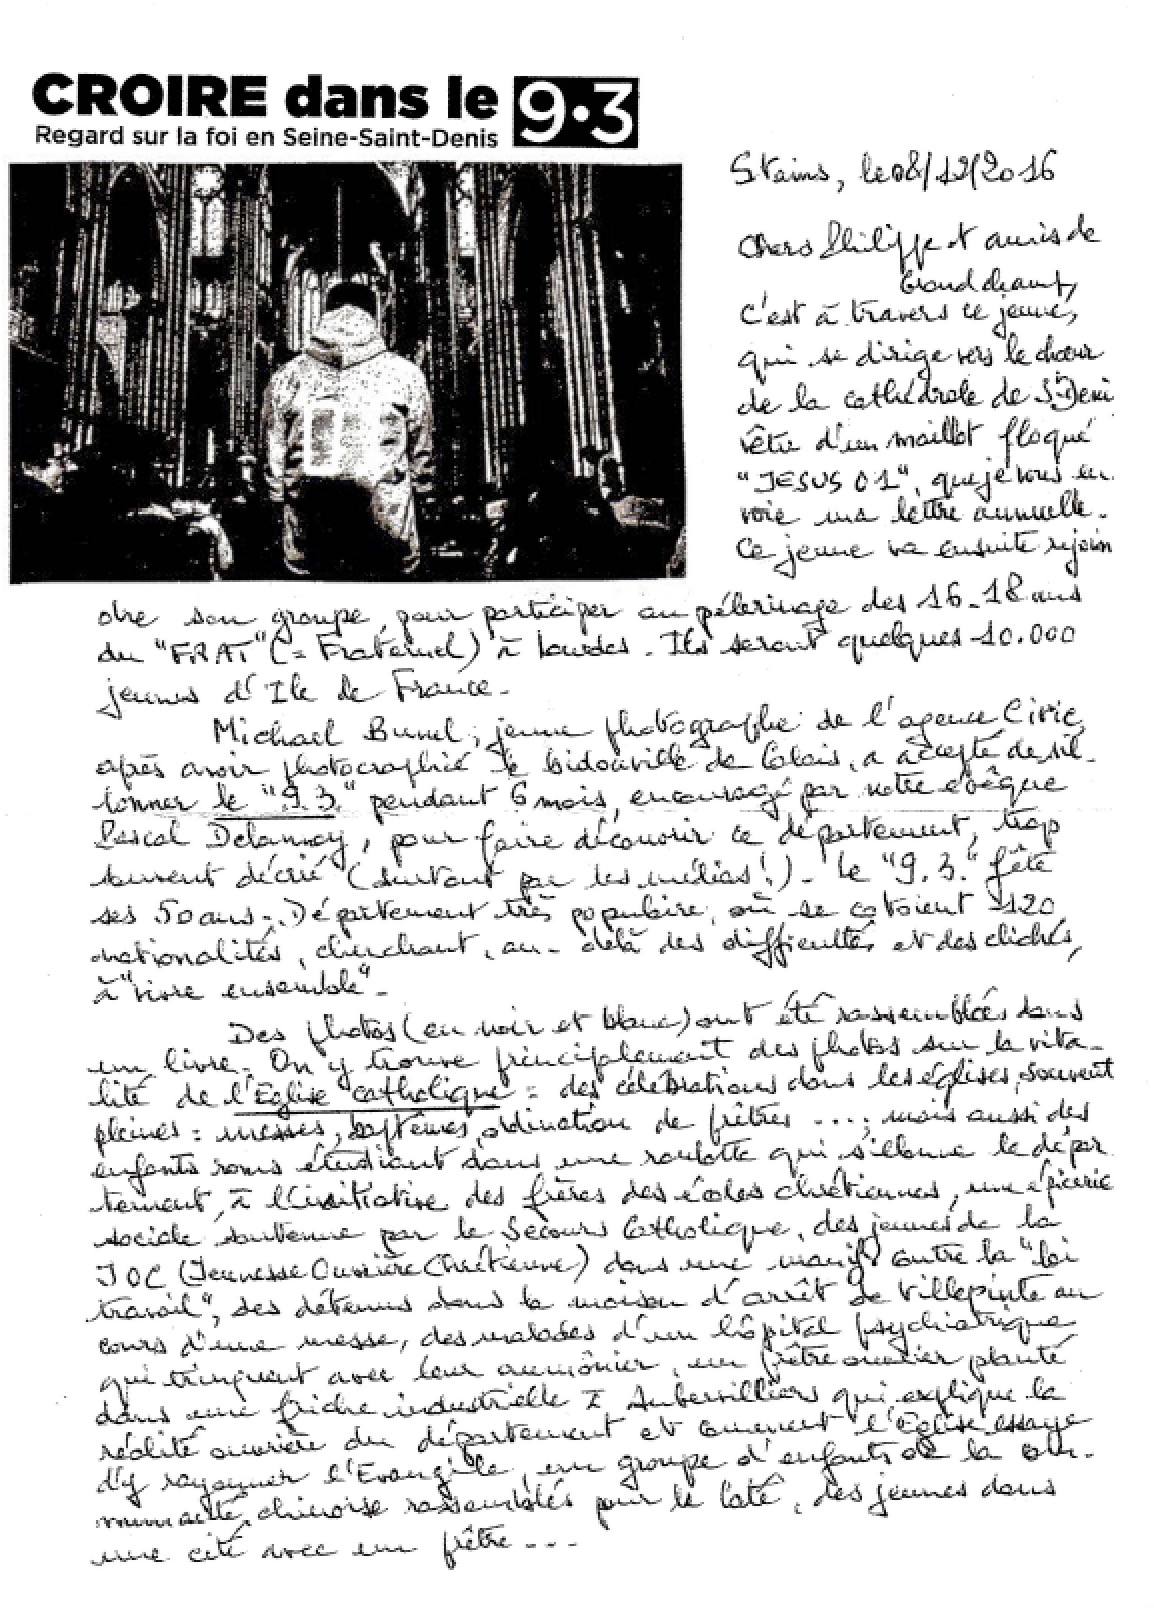 CROIRE dans le 9.3
Regard sur la foi en Seine-Saint-Denis
Stains, le 08/12/2016
Chers Philippe et amis de
Grandchamp,
C'est à travers ce jeune,
qui se dirige vers le chœur
de la cathédrale de St Deni
vêtu d'un maillot floqué
"JESUS 01", que je vous en
voie ma lettre annuelle.
Ce jeune va ensuite rejoin
dre son groupe, pour participer au pélerinage des 16-18 ans
du "FRAT" (= Fraternel) à Lourdes. Ils seront quelques 10.000
jeunes d'Ile de France.
Michael Bunel, jeune photographe de l'agence Ciric,
après avoir photographié le bidonville de Calais, a accepté de sil-
lonner le "9.3." pendant 6 mois, encouragé par notre évêque
Pascal Delannoy, pour faire découvrir ce département, trop
souvent décrié (surtout par les médias!). Le "9.3." fête
ses 50 ans. Département très populaire, où se cotoient 120
nationalités, cherchant, au-delà des difficultés et des clichés,
à "vivre ensemble".
Des photos (en noir et blanc) ont été rassemblées dans
un livre. On y trouve principalement des photos sur la vita-
lité de l'Eglise catholique = des célébrations dans les églises, souvent
pleines = messes, baptêmes, ordination de prêtres ...; mais aussi des
enfants roms étudiant dans une roulotte qui sillonne le dépar
tement, à l'initiative des frères des écoles chrétiennes, une épicerie
sociale soutenue par le Secours Catholique, des jeunes de la
JOC (Jeunesse Ouvrière Chrétienne) dans une manif contre la "loi
travail", des détenus dans la maison d'arrêt de Villepinte au
cours d'une messe, des malades d'un hôpital psychiatrique
qui trinquent avec leur aumônier, un prêtre ouvrier planté
dans une friche industrielle à Aubervilliers qui explique la
réalité ouvrière du département et comment l'Eglise essaye
d'y rayonner l'Evangile, un groupe d'enfants de la com-
munauté chinoise rassemblés pour le caté, des jeunes dans
une cité avec un prêtre ...